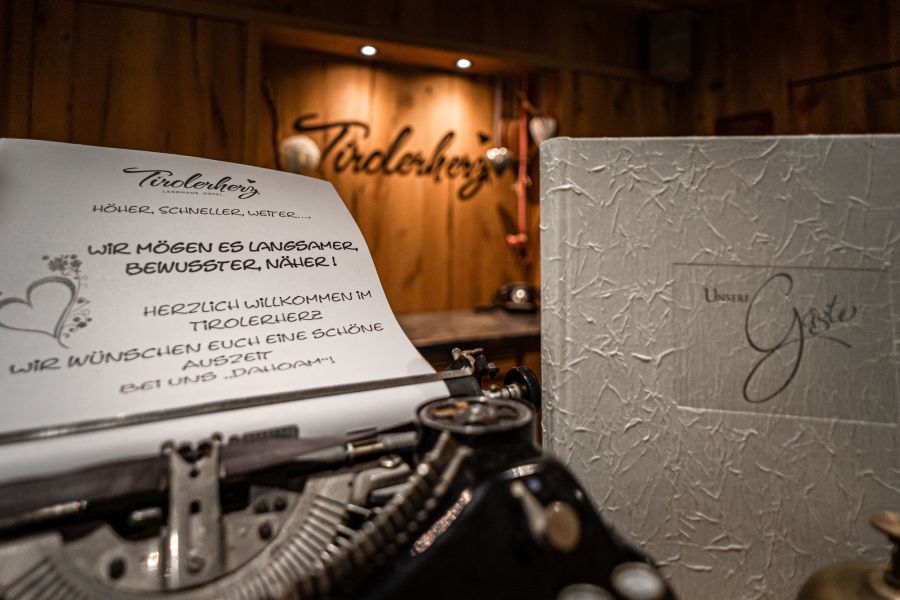 Tirolerherz
Tirolerherz
LANDHAUS. HOTEL.
HÖHER, SCHNELLER, WEITER....
WIR MÖGEN ES LANGSAMER,
BEWUSSTER, NÄHER !
HERZLICH WILLKOMMEN IM
TIROLERHERZ
WIR WÜNSCHEN EUCH EINE SCHÖNE
AUSZEIT
BEI UNS „DAHOAM“!
UNSERE
Gäste